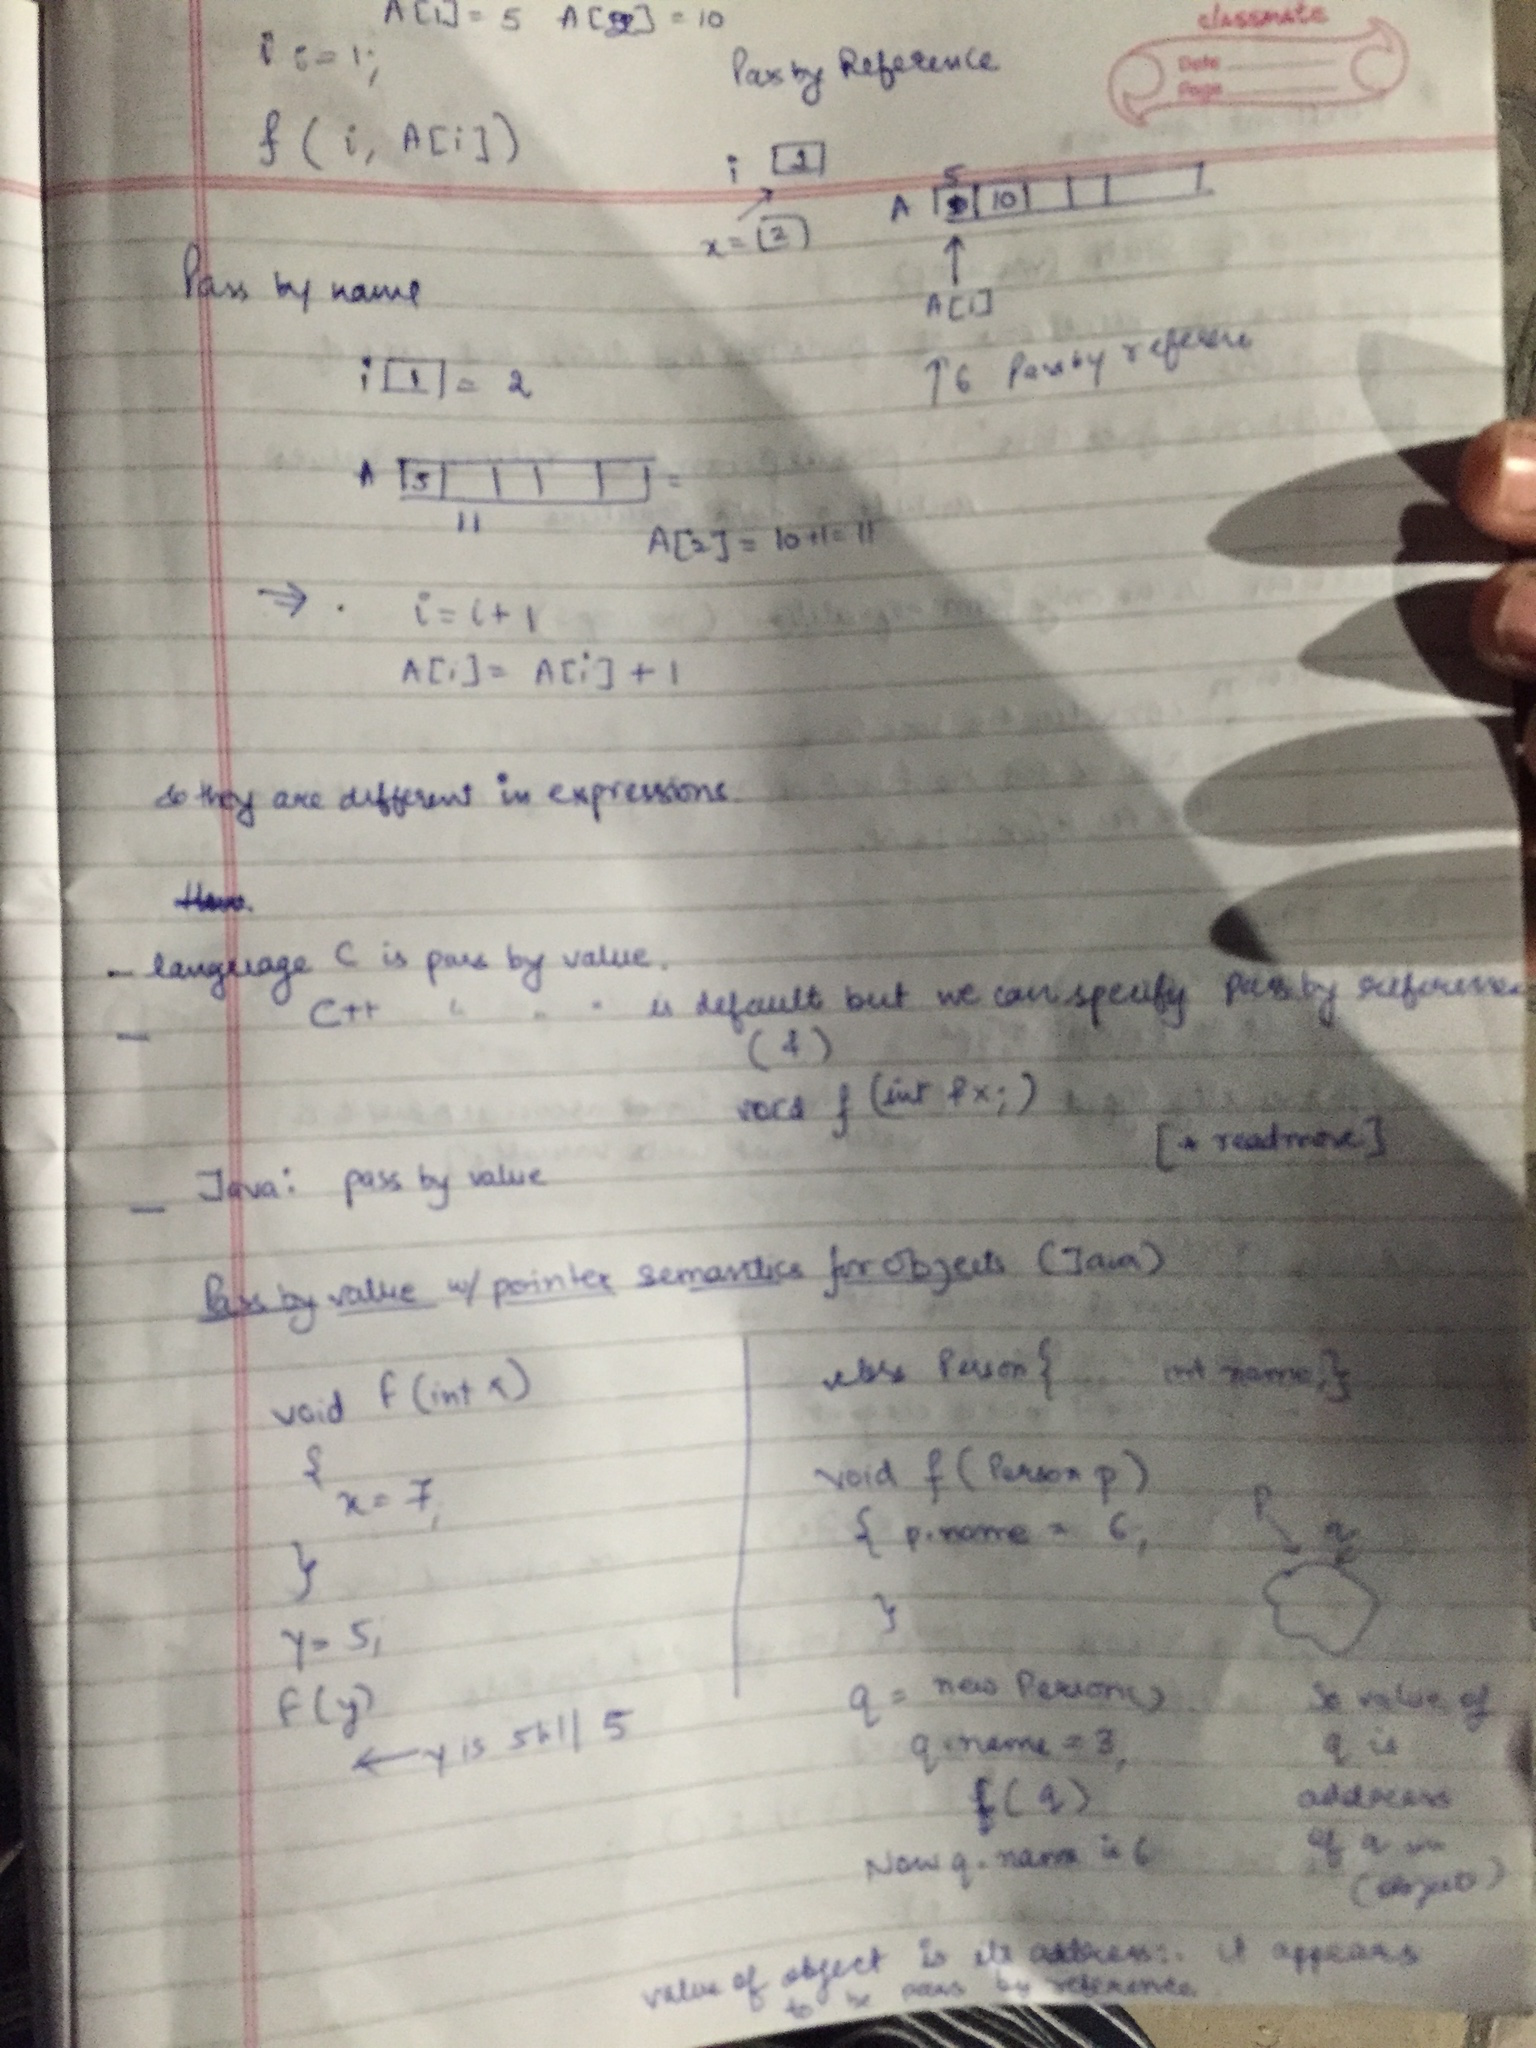 A[1] = 5 A[2] = 10
classmate
Date
Page
i i = 1;
Pass by Reference
f ( i, A[i] )
i 2
5
A 10
x = 2
A[i]
↑6 Pass by reference
Pass by name
i 1 = 2
A 5 =
11
A[2] = 10+1 = 11
⇒ . i = i + 1
A[i] = A[i] + 1
So they are different in expressions.
- language C is pass by value.
- C++ " " " is default but we can specify pass by reference
(&)
void f (int &x;)
[* readmore]
- Java: pass by value
Pass by value w/ pointer semantics for objects (Java)
void f (int x)
{
x = 7;
}
y = 5;
f(y)
← y is still 5
class Person { int name; }
void f ( Person p )
{ p.name = 6;
}
p
q
q = new Person()
q.name = 3;
f( q )
Now q.name is 6
So value of
q is
address
of q
(object)
value of object is its address ∴ it appears
to be pass by reference.